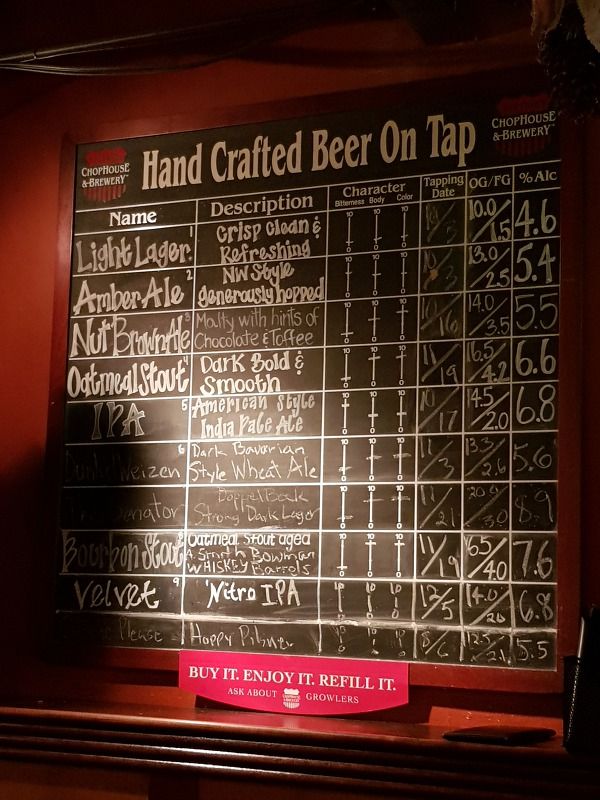 CHOPHOUSE
& BREWERY
Hand Crafted Beer On Tap
CHOPHOUSE
& BREWERY
Name
Description
Character
Bitterness Body Color
Tapping Date
OG/FG
% Alc
Light Lager 1 Crisp Clean & Refreshing 10.0/1.5 4.6
Amber Ale 2 NW Style generously hopped 13.0/2.5 5.4
Nut Brown Ale 3 Malty with hints of Chocolate & Toffee 10/16 14.0/3.5 5.5
Oatmeal Stout 4 Dark Bold & Smooth 11/19 16.5/4.2 6.6
IPA 5 American Style India Pale Ale 10/17 14.5/2.0 6.8
Dunkel Weizen 6 Dark Bavarian Style Wheat Ale 11/3 13.3/2.6 5.6
Doppel Bock Strong Dark Lager 11/21 20.4/3.0 8.9
Bourbon Stout Oatmeal Stout aged A. Smith Bowman WHISKEY Barrels 11/19 16.5/4.0 7.6
Velvet 9 Nitro IPA 12/5 14.0/2.0 6.8
Please Hoppy Pilsner 8/6 12.5/2.1 5.5
BUY IT. ENJOY IT. REFILL IT.
ASK ABOUT GROWLERS